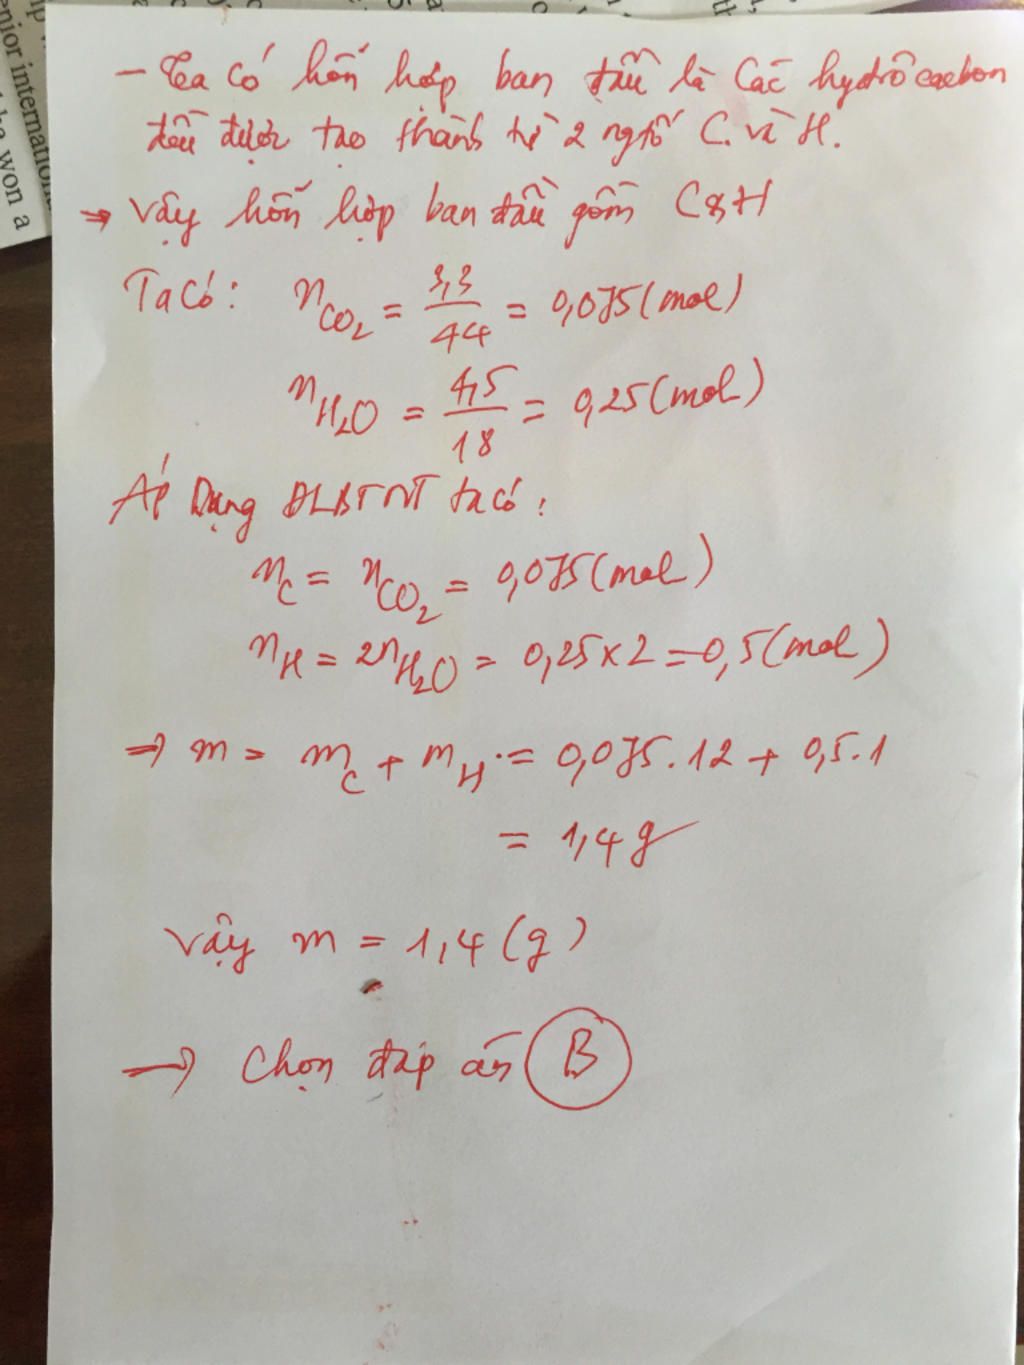 - Ta có hỗn hợp ban đầu là các hydrôcacbon
đều được tạo thành từ 2 ngtố C và H.
⇒ Vậy hỗn hợp ban đầu gồm C & H
Ta có: nCO2 = 3,3/44 = 0,075 (mol)
nH2O = 4,5/18 = 0,25 (mol)
Áp Dụng ĐLBTNT ta có:
nC = nCO2 = 0,075 (mol)
nH = 2nH2O = 0,25 x 2 = 0,5 (mol)
⇒ m = mC + mH = 0,075 . 12 + 0,5 . 1
= 1,4 g
Vậy m = 1,4 (g)
→ Chọn đáp án B